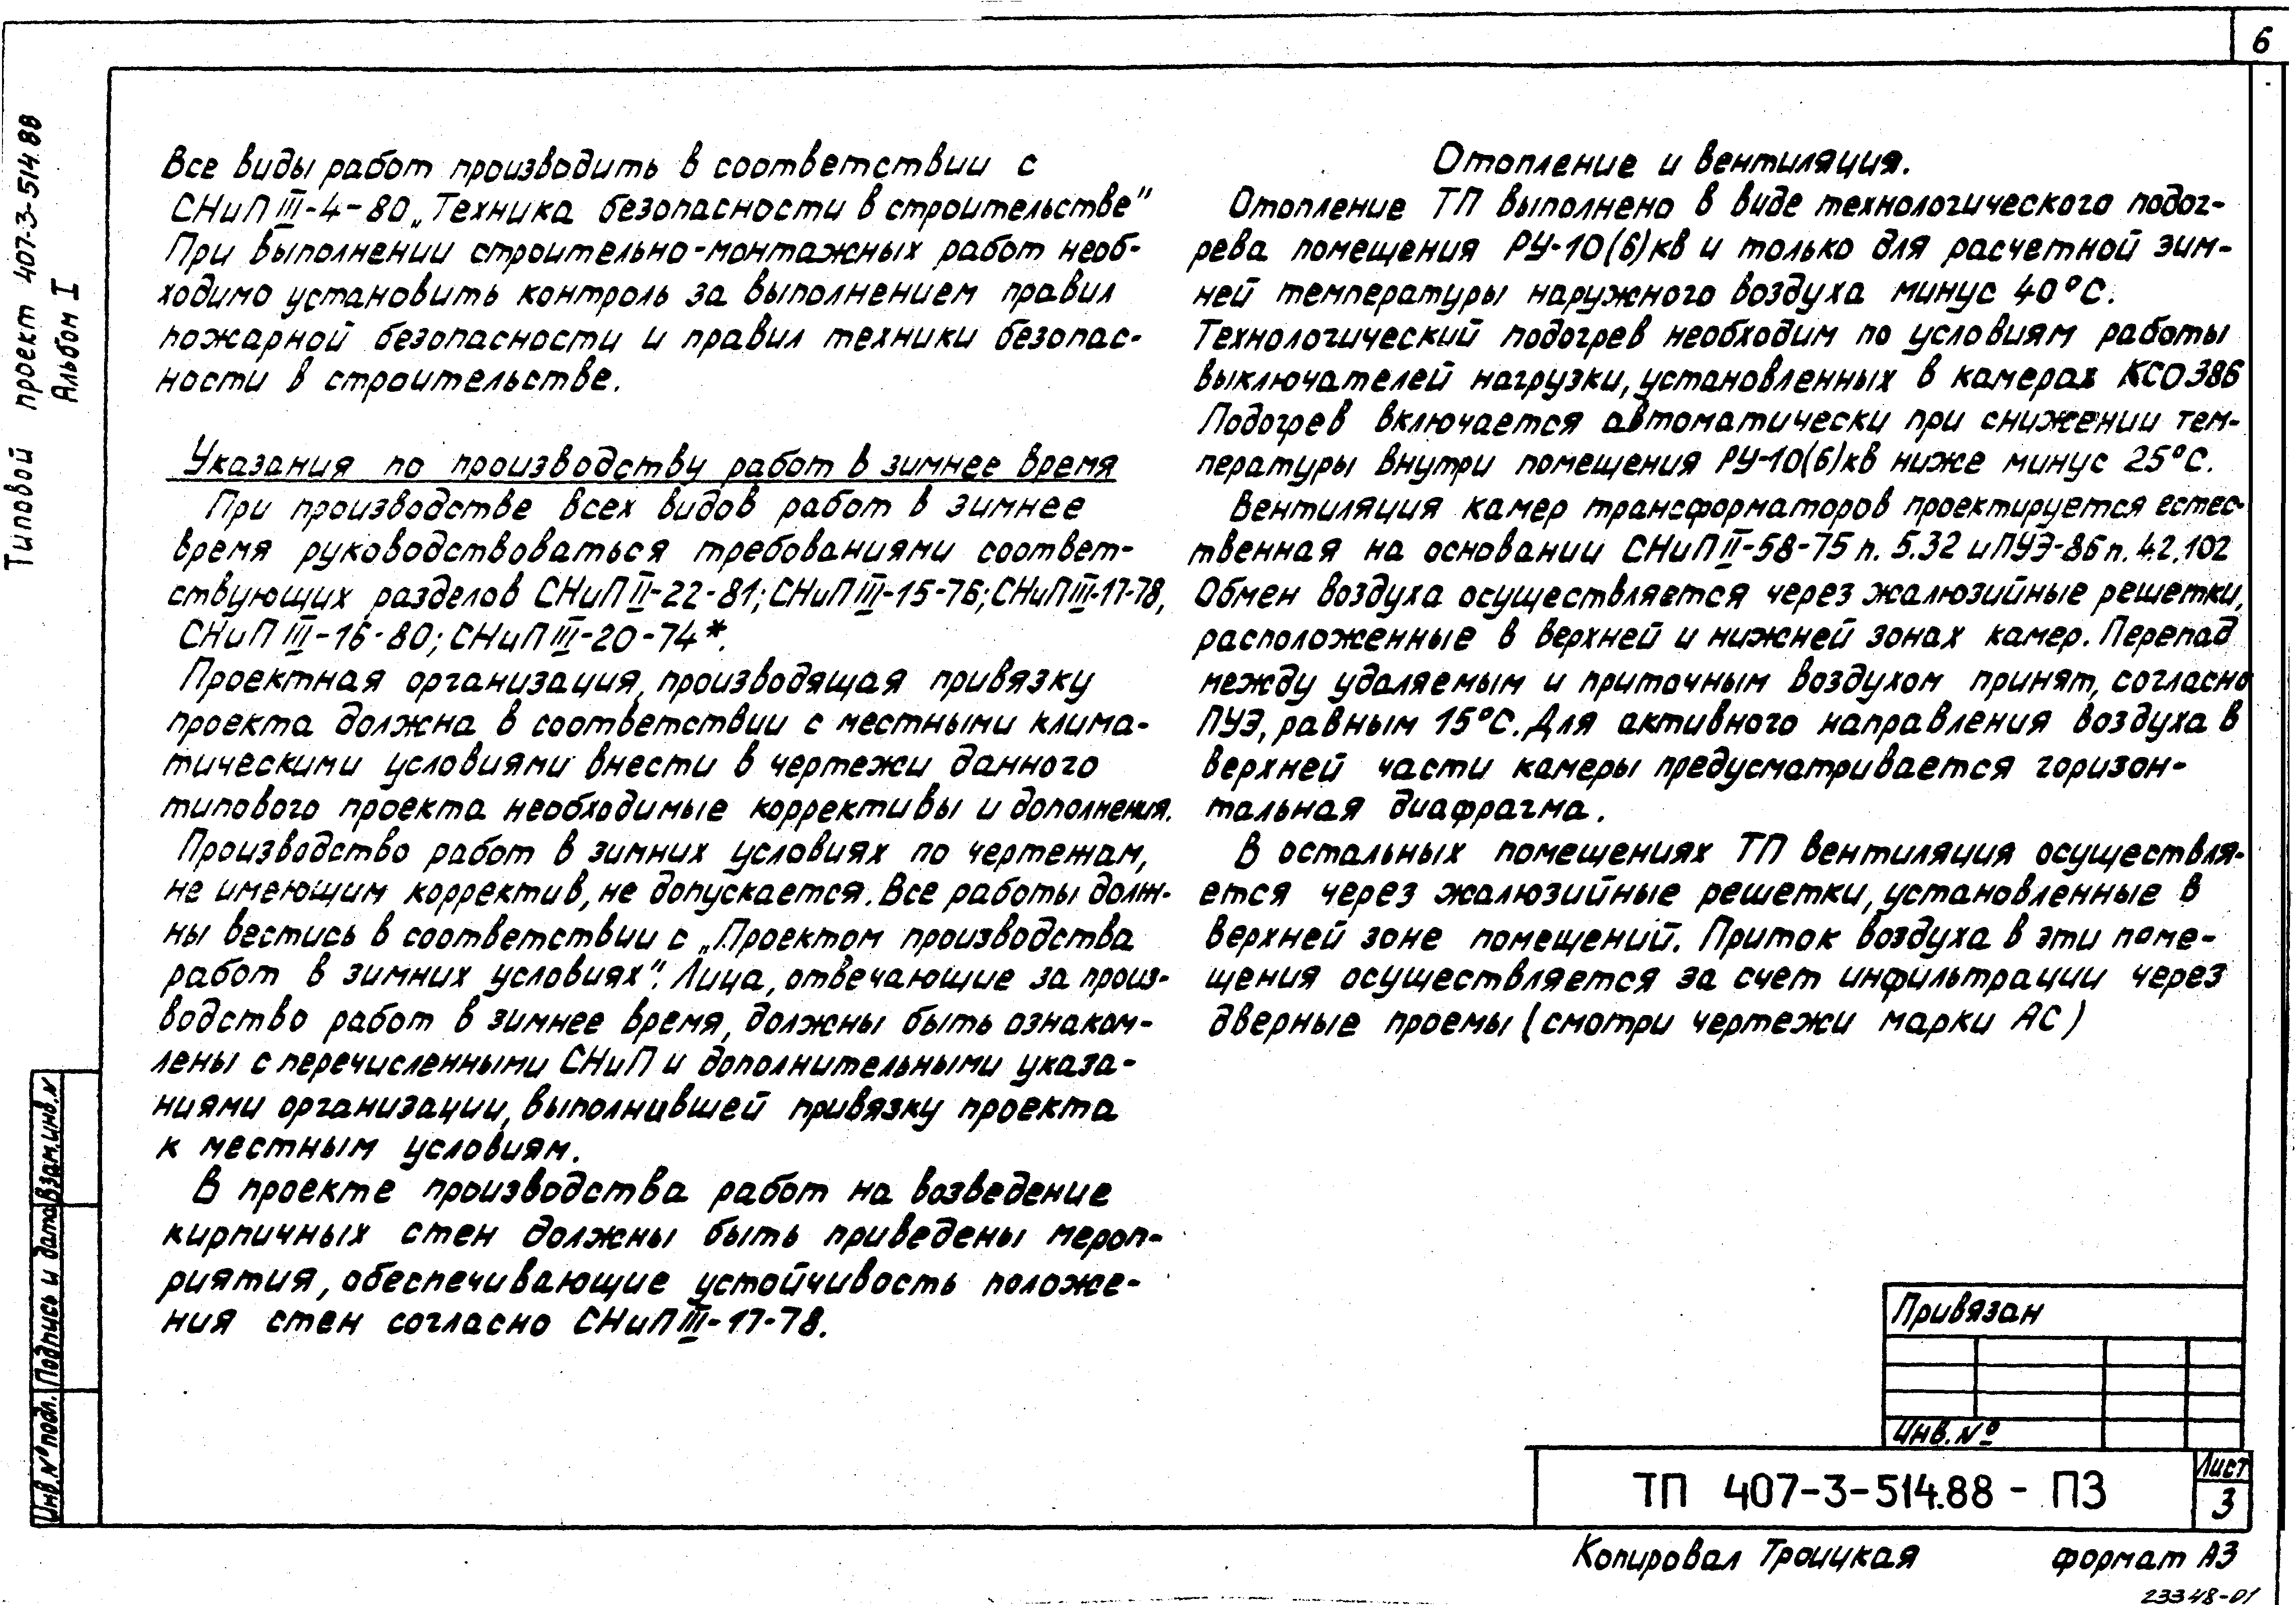 6
Типовой проект 407-3-514.88
Альбом I
Все виды работ производить в соответствии с
СНиП III-4-80 „Техника безопасности в строительстве"
При выполнении строительно-монтажных работ необ-
ходимо установить контроль за выполнением правил
пожарной безопасности и правил техники безопас-
ности в строительстве.
Указания по производству работ в зимнее время
При производстве всех видов работ в зимнее
время руководствоваться требованиями соответ-
ствующих разделов СНиП II-22-81; СНиП III-15-76; СНиП III-17-78,
СНиП III-16-80; СНиП III-20-74*.
Проектная организация, производящая привязку
проекта должна в соответствии с местными клима-
тическими условиями внести в чертежи данного
типового проекта необходимые коррективы и дополнения.
Производство работ в зимних условиях по чертежам,
не имеющим корректив, не допускается. Все работы долж-
ны вестись в соответствии с „Проектом производства
работ в зимних условиях". Лица, отвечающие за произ-
водство работ в зимнее время, должны быть ознаком-
лены с перечисленными СНиП и дополнительными указа-
ниями организации, выполнившей привязку проекта
к местным условиям.
В проекте производства работ на возведение
кирпичных стен должны быть приведены мероп-
риятия, обеспечивающие устойчивость положе-
ния стен согласно СНиП III-17-78.
Отопление и вентиляция.
Отопление ТП выполнено в виде технологического подог-
рева помещения РУ-10(6)кв и только для расчетной зим-
ней температуры наружного воздуха минус 40°С.
Технологический подогрев необходим по условиям работы
выключателей нагрузки, установленных в камерах КСО386
Подогрев включается автоматически при снижении тем-
пературы внутри помещения РУ-10(6)кв ниже минус 25°С.
Вентиляция камер трансформаторов проектируется естес-
твенная на основании СНиП II-58-75 п. 5.32 и ПУЭ-86 п. 4.2.102
Обмен воздуха осуществляется через жалюзийные решетки,
расположенные в верхней и нижней зонах камер. Перепад
между удаляемым и приточным воздухом принят, согласно
ПУЭ, равным 15°С. Для активного направления воздуха в
верхней части камеры предусматривается горизон-
тальная диафрагма.
В остальных помещениях ТП вентиляция осуществля-
ется через жалюзийные решетки, установленные в
верхней зоне помещений. Приток воздуха в эти поме-
щения осуществляется за счет инфильтрации через
дверные проемы (смотри чертежи марки АС)
Инв.№ подл.
Подпись и дата
Взам.инв.№
Привязан
Инв.№
ТП 407-3-514.88 - ПЗ
Лист
3
Копировал Троицкая
формат А3
23348-01